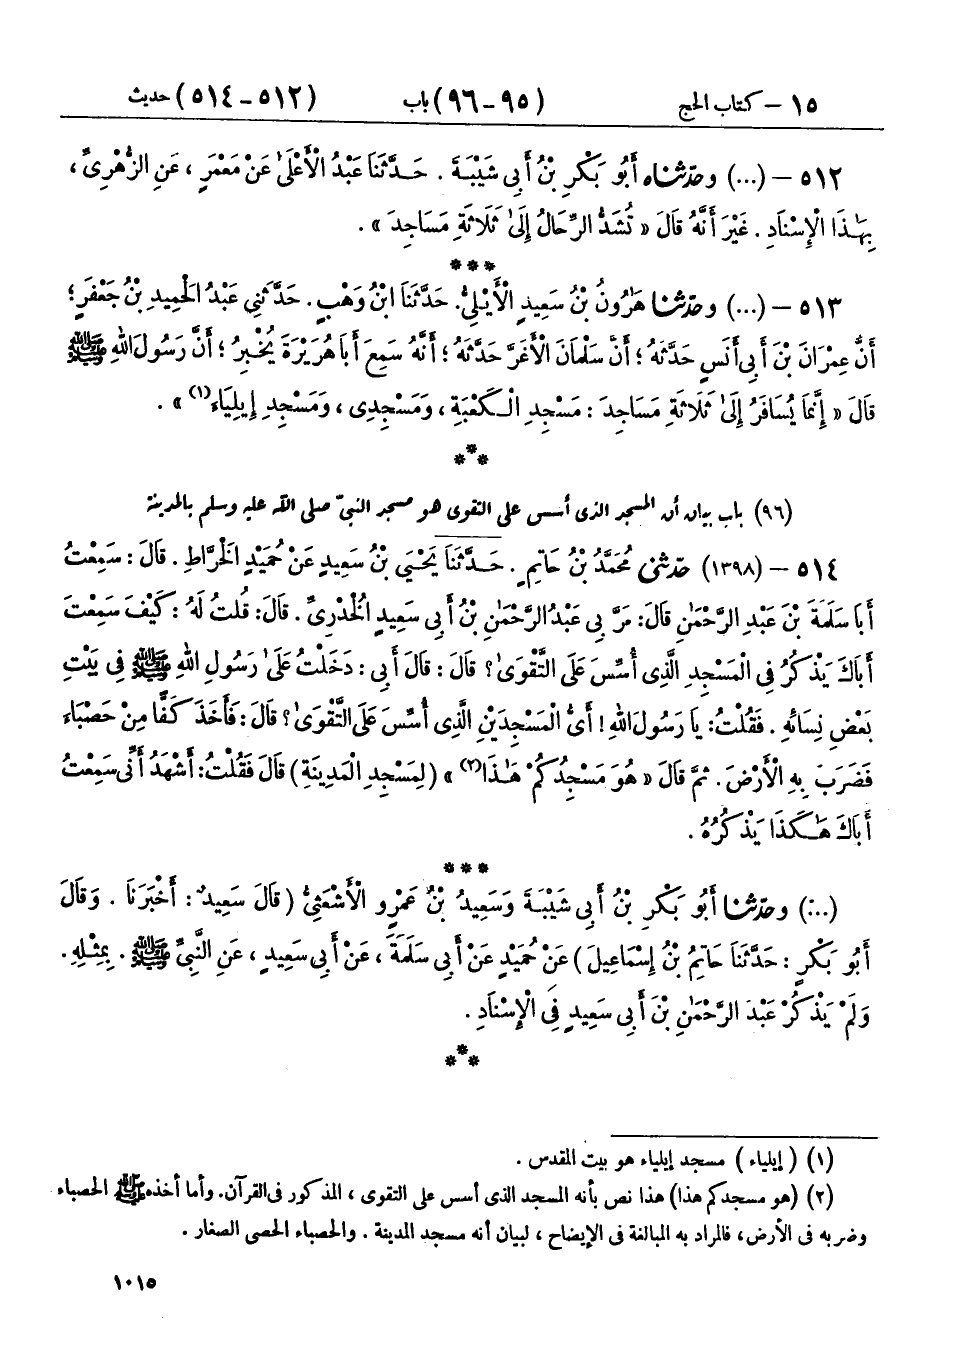 ١٥ – كتاب الحج (٩٥-٩٦) باب (٥١٢-٥١٤) حديث
٥١٢ – (...) وحدّثناه أَبُو بَكْرِ بْنُ أَبِي شَيْبَةَ . حَدَّثَنَا عَبْدُ الْأَعْلَىٰ عَنْ مَعْمَرٍ ، عَنِ الزُّهْرِيِّ ،
بِهَٰذَا الْإِسْنَادِ . غَيْرَ أَنَّهُ قَالَ « تُشَدُّ الرِّحَالُ إِلَىٰ ثَلَاثَةِ مَسَاجِدَ » .
***
٥١٣ – (...) وحدّثنا هَٰرُونُ بْنُ سَعِيدٍ الْأَيْلِيُّ. حَدَّثَنَا ابْنُ وَهْبٍ. حَدَّثَنِي عَبْدُ الْحَمِيدِ بْنُ جَعْفَرٍ؛
أَنَّ عِمْرَانَ بْنَ أَبِي أَنَسٍ حَدَّثَهُ ؛ أَنَّ سَلْمَانَ الْأَغَرَّ حَدَّثَهُ ؛ أَنَّهُ سَمِعَ أَبَا هُرَيْرَةَ يُخْبِرُ ؛ أَنَّ رَسُولَ اللهِ ﷺ
قَالَ « إِنَّمَا يُسَافَرُ إِلَىٰ ثَلَاثَةِ مَسَاجِدَ : مَسْجِدِ الْكَعْبَةِ ، وَمَسْجِدِي ، وَمَسْجِدِ إِيلِيَاءَ(١) » .
***
(٩٦) باب بيان أن المسجد الذى أسس على التقوى هو مسجد النبىّ صلى الله عليه وسلم بالمدينة
٥١٤ – (١٣٩٨) حدّثنى مُحَمَّدُ بْنُ حَاتِمٍ . حَدَّثَنَا يَحْيَىٰ بْنُ سَعِيدٍ عَنْ حُمَيْدٍ الْخَرَّاطِ . قَالَ : سَمِعْتُ
أَبَا سَلَمَةَ بْنَ عَبْدِ الرَّحْمَٰنِ قَالَ: مَرَّ بِي عَبْدُ الرَّحْمَٰنِ بْنُ أَبِي سَعِيدٍ الْخُدْرِيِّ . قَالَ: قُلْتُ لَهُ : كَيْفَ سَمِعْتَ
أَبَاكَ يَذْكُرُ فِي الْمَسْجِدِ الَّذِي أُسِّسَ عَلَى التَّقْوَىٰ؟ قَالَ : قَالَ أَبِي : دَخَلْتُ عَلَىٰ رَسُولِ اللهِ ﷺ فِي بَيْتِ
بَعْضِ نِسَائِهِ . فَقُلْتُ: يَا رَسُولَ اللهِ ! أَيُّ الْمَسْجِدَيْنِ الَّذِي أُسِّسَ عَلَى التَّقْوَىٰ؟ قَالَ : فَأَخَذَ كَفًّا مِنْ حَصْبَاءَ
فَضَرَبَ بِهِ الْأَرْضَ . ثُمَّ قَالَ « هُوَ مَسْجِدُكُمْ هَٰذَا(٢) » (لِمَسْجِدِ الْمَدِينَةِ) قَالَ فَقُلْتُ: أَشْهَدُ أَنِّي سَمِعْتُ
أَبَاكَ هَٰكَذَا يَذْكُرُهُ .
***
(...) وحدّثنا أَبُو بَكْرِ بْنُ أَبِي شَيْبَةَ وَسَعِيدُ بْنُ عَمْرٍو الْأَشْعَثِيُّ ( قَالَ سَعِيدٌ : أَخْبَرَنَا . وَقَالَ
أَبُو بَكْرٍ : حَدَّثَنَا حَاتِمُ بْنُ إِسْمَاعِيلَ ) عَنْ حُمَيْدٍ عَنْ أَبِي سَلَمَةَ ، عَنْ أَبِي سَعِيدٍ ، عَنِ النَّبِيِّ ﷺ . بِمِثْلِهِ .
وَلَمْ يَذْكُرْ عَبْدَ الرَّحْمَٰنِ بْنَ أَبِي سَعِيدٍ فِي الْإِسْنَادِ .
***
(١) ( إيلياء ) مسجد إيلياء هو بيت المقدس .
(٢) (هو مسجدكم هذا) هذا نص بأنه المسجد الذى أسس على التقوى ، المذكور فى القرآن. وأما أخذه ﷺ الحصباء
وضربه فى الأرض، فالمراد به المبالغة فى الإيضاح ، لبيان أنه مسجد المدينة . والحصباء الحصى الصغار .
١٠١٥